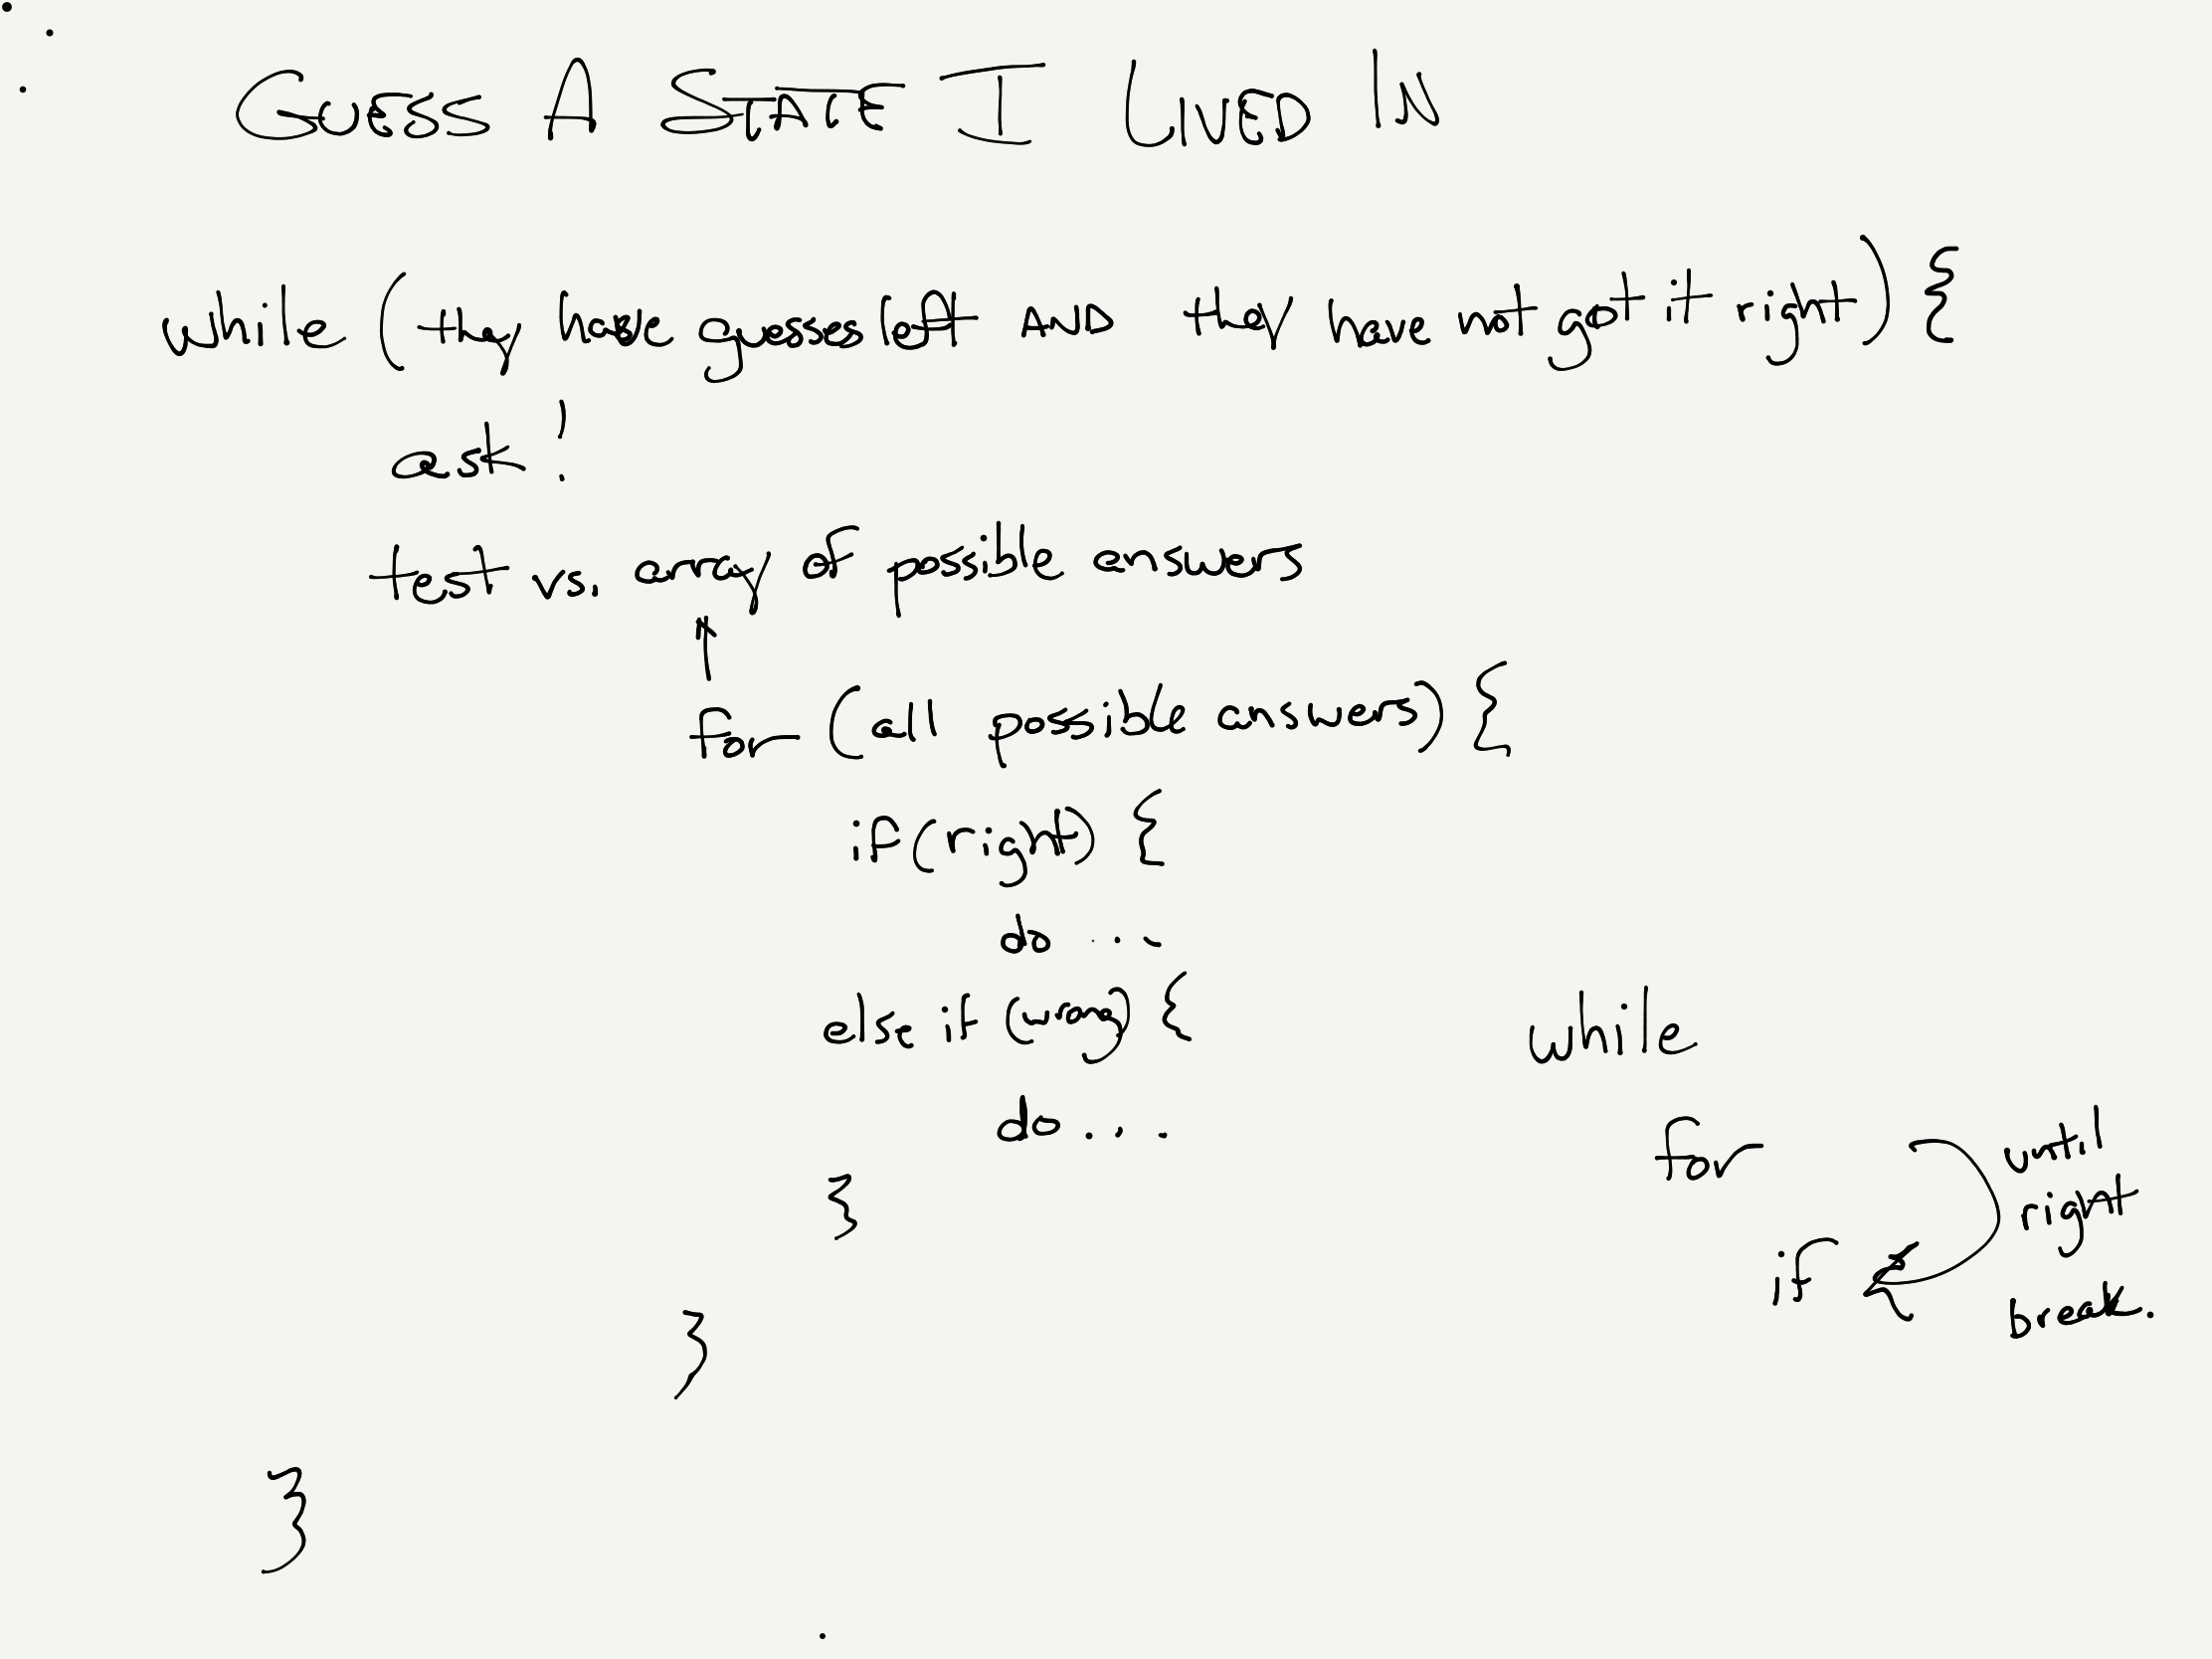 GUESS A STATE I LIVED IN
while (they have guesses left AND they have not got it right) {
ask!
test vs. array of possible answers
for (all possible answers) {
if (right) {
do ...
else if (wrong) {
do ...
}
}
}
while
for
if
until
right
break.